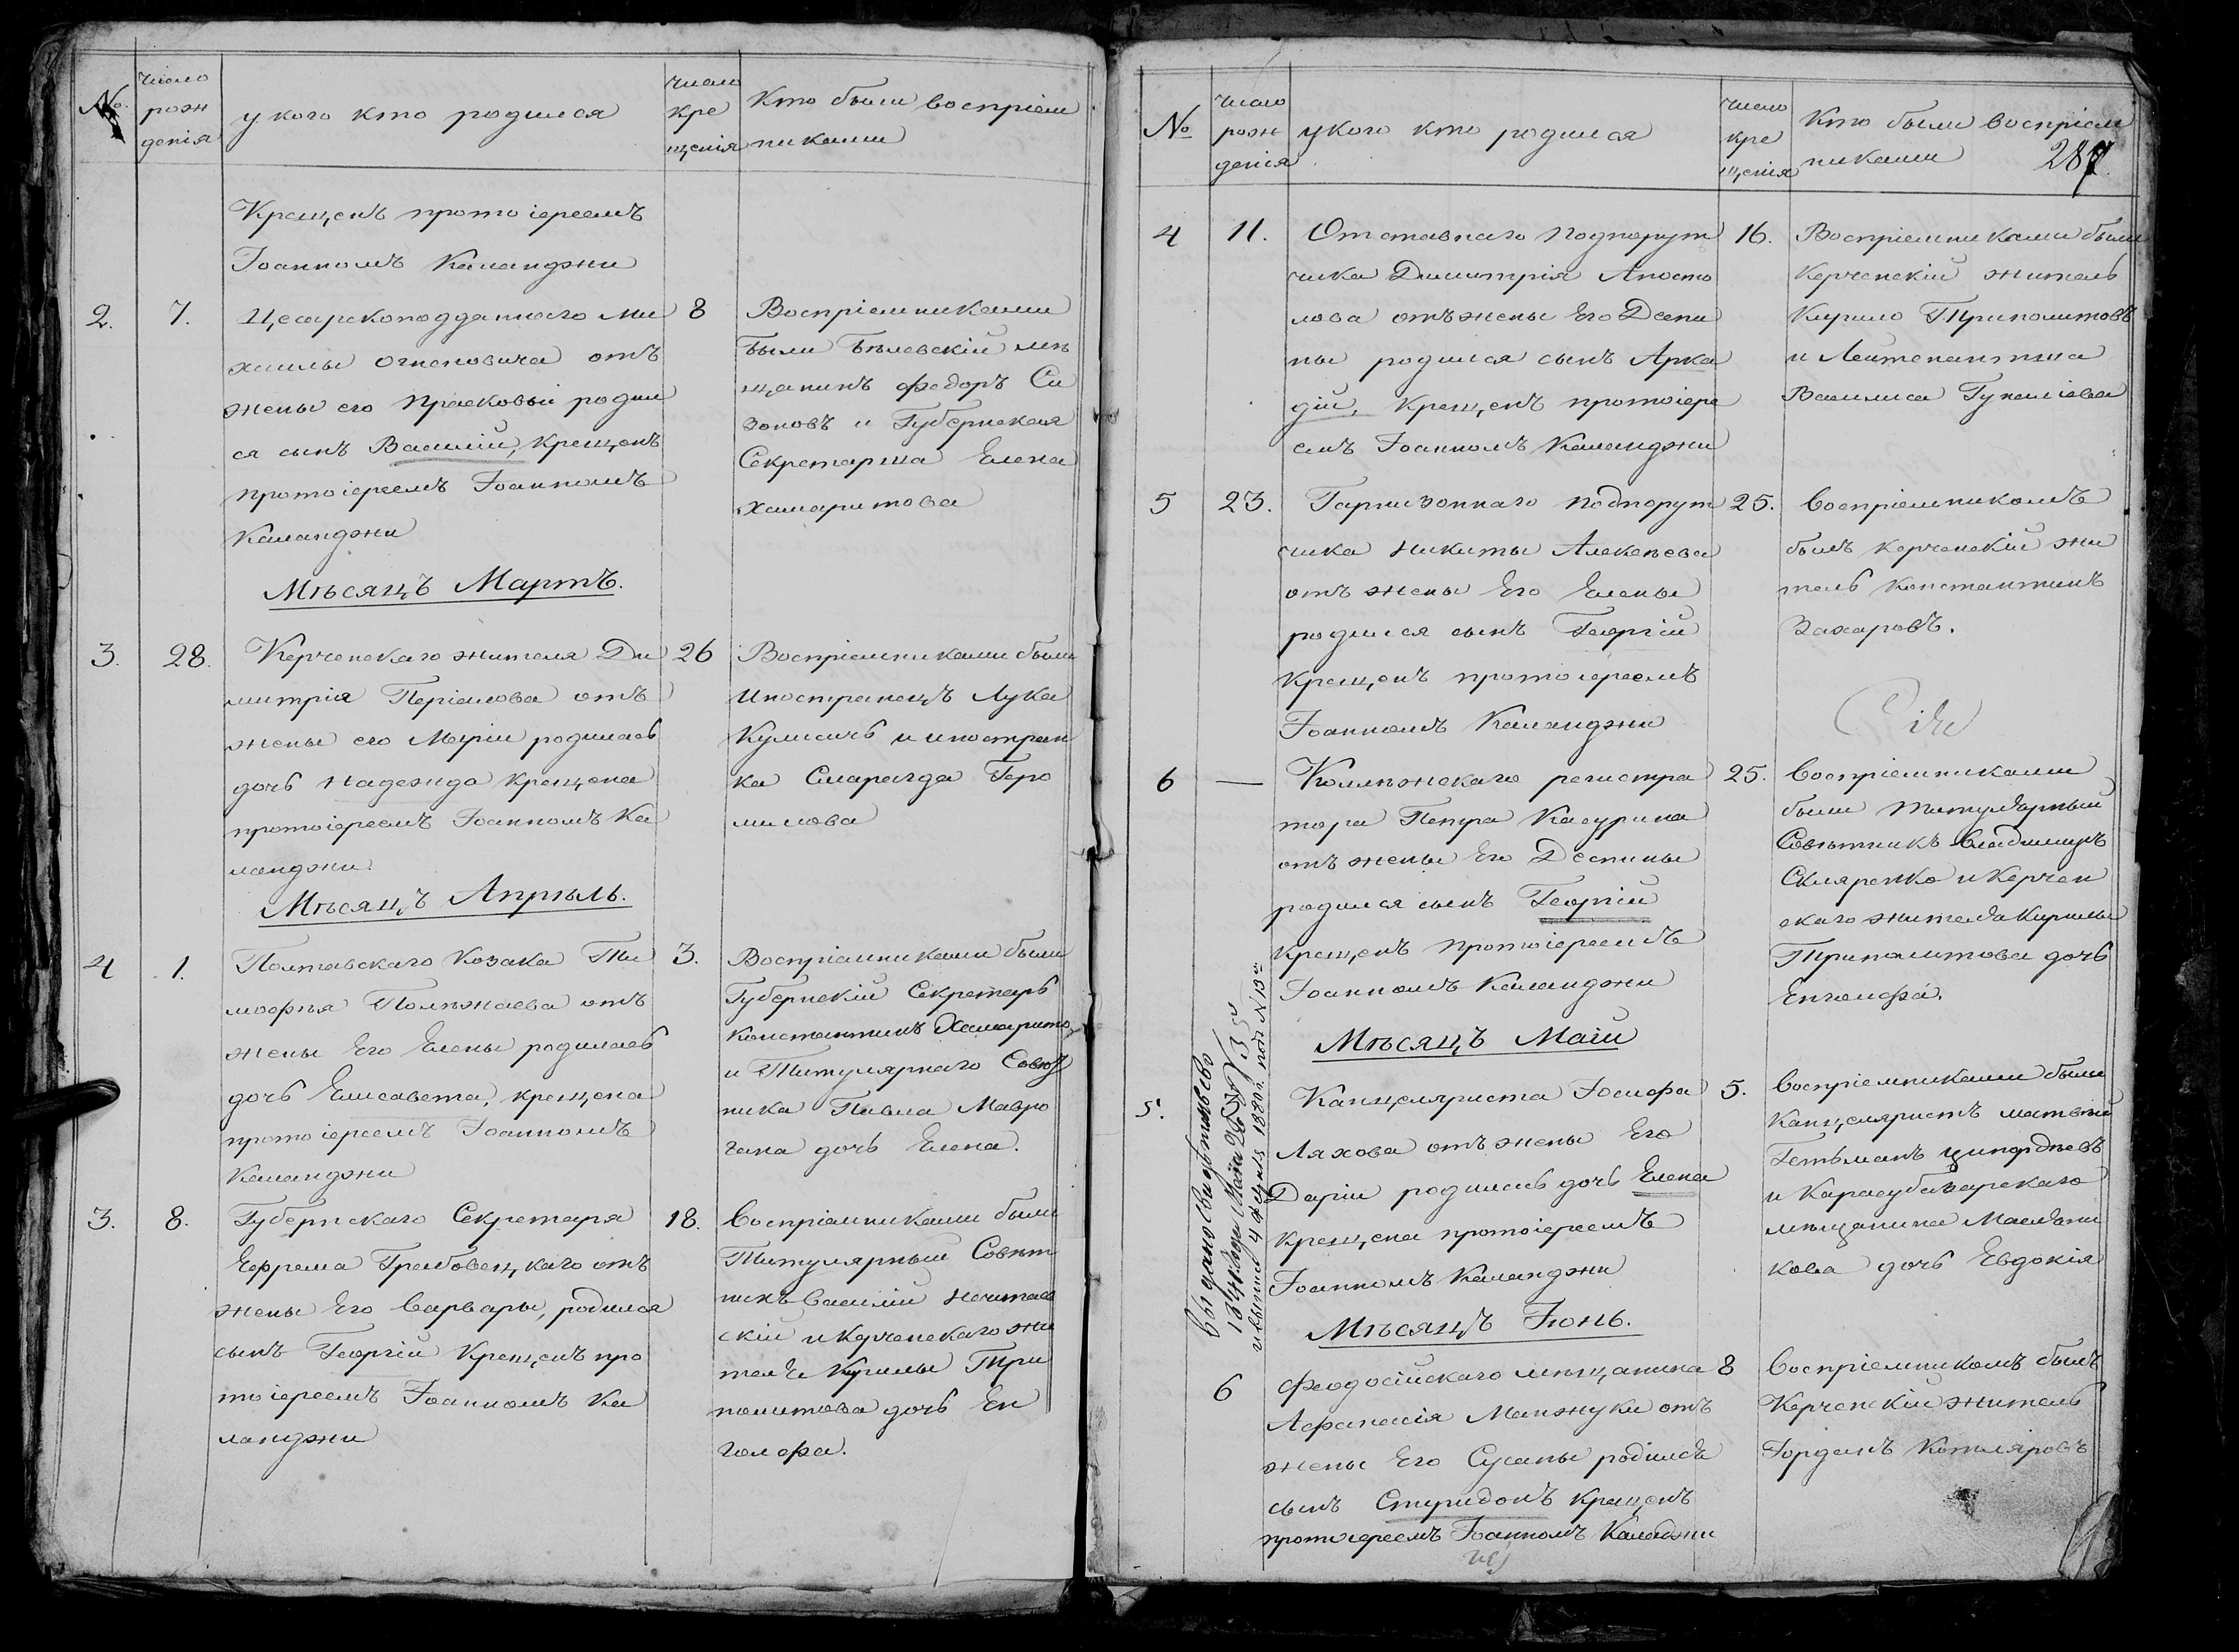 №
число
рож
денія
у кого кто родился
число
кре
щенія
Кто были воспріем
никами
Крещенъ протоіереемъ
Іоанномъ Каланджи
2.
7.
Цесарскоподданнаго Ми
хаилы Огненовича отъ
жены его Прасковьи родил
ся сынъ Василій, крещенъ
протоіереемъ Іоанномъ
Каланджи
8
Воспріемниками
были Бѣлевскій мѣ
щанинъ Федоръ Си
зоновъ и Губернская
Секретарша Елена
Хамаритова
Мѣсяцъ Мартъ.
3.
28.
Керченскаго жителя Ди
митрія Періалова отъ
жены его Маріи родилась
дочь Надежда крещена
протоіереемъ Іоанномъ Ка
ланджи.
26
Воспріемниками были
Иностранецъ Лука
Кулисичь и иностран
ка Смарагда Геро
милова
Мѣсяцъ Апрѣль.
4
1.
Полтавскаго Козака Ти
мофѣя Полѣжаева отъ
жены Его Елены родилась
дочь Елисавета, крещена
протоіереемъ Іоанномъ
Каланджи
3.
Воспріемниками были
Губернскій Секретарь
Константинъ Хамарито
и Титулярнаго Совѣт
ника Павла Мавро
гана дочь Елена.
3.
8.
Губернскаго Секретаря
Ефрема Грабовецкаго отъ
жены Его Варвары, родился
сынъ Георгій Крещенъ про
тоіереемъ Іоанномъ Ка
ланджи
18.
Воспріемниками были
Титулярный Совѣт
никъ Василій
скій и Керченскаго жи
теля Кирилы Три
политова дочь Ен
голфа.
№
число
рож
денія
у кого кто родился
число
кре
щенія
Кто были воспріем
никами
287
4
11.
Отставнаго Подпорут
чика Димитрія Апосто
лова отъ жены Его Деспи
ны родился сынъ Арка
дій, крещенъ протоіере
емъ Іоанномъ Каланджи
16.
Воспріемниками были
Керченскій житель
Кирило Триполитовъ
и Лейтенантша
Василиса Гуналіева
5
23.
Гарнизоннаго Подпорут
чика Никиты Алексѣева
отъ жены Его Елены
родился сынъ Георгій
крещенъ протоіереемъ
Іоанномъ Каланджи
25.
Воспріемникомъ
былъ керченскій жи
тель Константинъ
Захаровъ.
6
—
Коллѣжскаго регистра
тора Петра Касурина
отъ жены Его Деспины
родился сынъ Георгій
крещенъ протоіереемъ
Іоанномъ Каланджи
25.
Воспріемниками
были Титулярный
Совѣтникъ Владимиръ
Скляренко и Керчен
скаго жителя Кирилы
Триполитова дочь
Енголфа.
Мѣсяцъ Маій
5.
Выдано свидѣтельство
1841 года Маія 26 № 3й
и выпись 4 1880 г. под № 13й
Канцеляриста Іосифа
Ляхова отъ жены Его
Даріи родилась дочь Елена
крещена протоіереемъ
Іоанномъ Каланджи
5.
Воспріемниками были
Канцеляристъ Матвѣй
Гетьманъ
и Карасубазарскаго
мѣщанина Маслени
кова дочь Евдокія
Мѣсяцъ Іюнь.
6
Феодосійскаго мѣщанина
Афанасія Манжуки отъ
жены Его Сусаны родился
сынъ Спиридонъ крещенъ
протоіереемъ Іоанномъ Каланджи
8
Воспріемникомъ былъ
Керченскій житель
Іорданъ Котляровъ